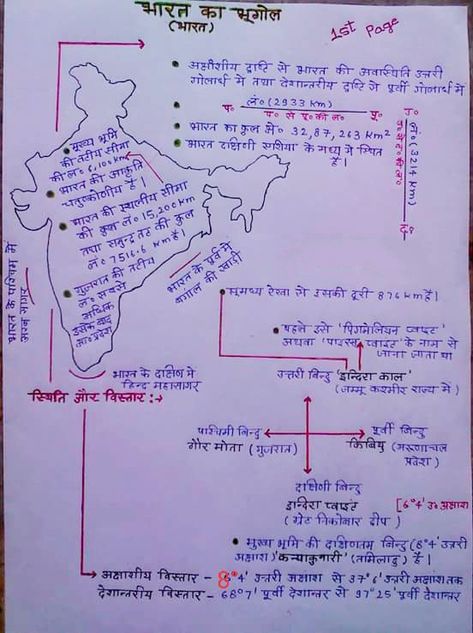 भारत का भूगोल
(भारत)
1st Page
• अक्षांशीय दृष्टि से भारत की अवस्थिति उत्तरी
गोलार्ध में तथा देशान्तरीय दृष्टि से पूर्वी गोलार्ध में
• लं० (2933 Km)
प० प० से पू० की लं० पू०
• भारत का कुल क्षे० 32,87,263 Km²
• भारत दक्षिणी एशिया के मध्य में स्थित
है।
उ०
लं० (3214 Km)
उ० से द० की लं०
द०
• मुख्य भूमि
की तटीय सीमा
की लं० 6,100 Km
• भारत की आकृति
चतुष्कोणीय है।
• भारत की स्थलीय सीमा
की कुल लं० 15,200 Km
तथा समुन्द्र तट की कुल
लं० 7516.6 Km है।
• गुजरात की तटीय
लं० सबसे
अधिक
इसके बाद
आ०प्रदेश
भारत के पश्चिम में
अरब सागर
भारत के पूर्व में
बंगाल की खाड़ी
भारत के दक्षिण में
हिन्द महासागर
• भूमध्य रेखा से उसकी दूरी 876 Km है।
• पहले इसे 'पिगमेलियन प्वाइंट'
अथवा 'पारसन प्वाइंट' के नाम से
जाना जाता था
उत्तरी बिन्दु 'इन्दिरा काल'
(जम्मू कश्मीर राज्य में)
स्थिति और विस्तार :→
पश्चिमी बिन्दु
गौर मोता (गुजरात)
पूर्वी बिन्दु
किबिथु (अरुणाचल
प्रदेश)
दक्षिणी बिन्दु
इन्दिरा प्वाइंट [6°4' उ० अक्षांश
(ग्रेट निकोबार द्वीप)
• मुख्य भूमि की दक्षिणतम् बिन्दु (8°4' उत्तरी
अक्षांश) 'कन्याकुमारी' (तमिलाडु) है।
अक्षांशीय विस्तार - 8°4' उत्तरी अक्षांश से 37°6' उत्तरी अक्षांश तक
देशान्तरीय विस्तार - 68°7' पूर्वी देशान्तर से 97°25' पूर्वी देशान्तर